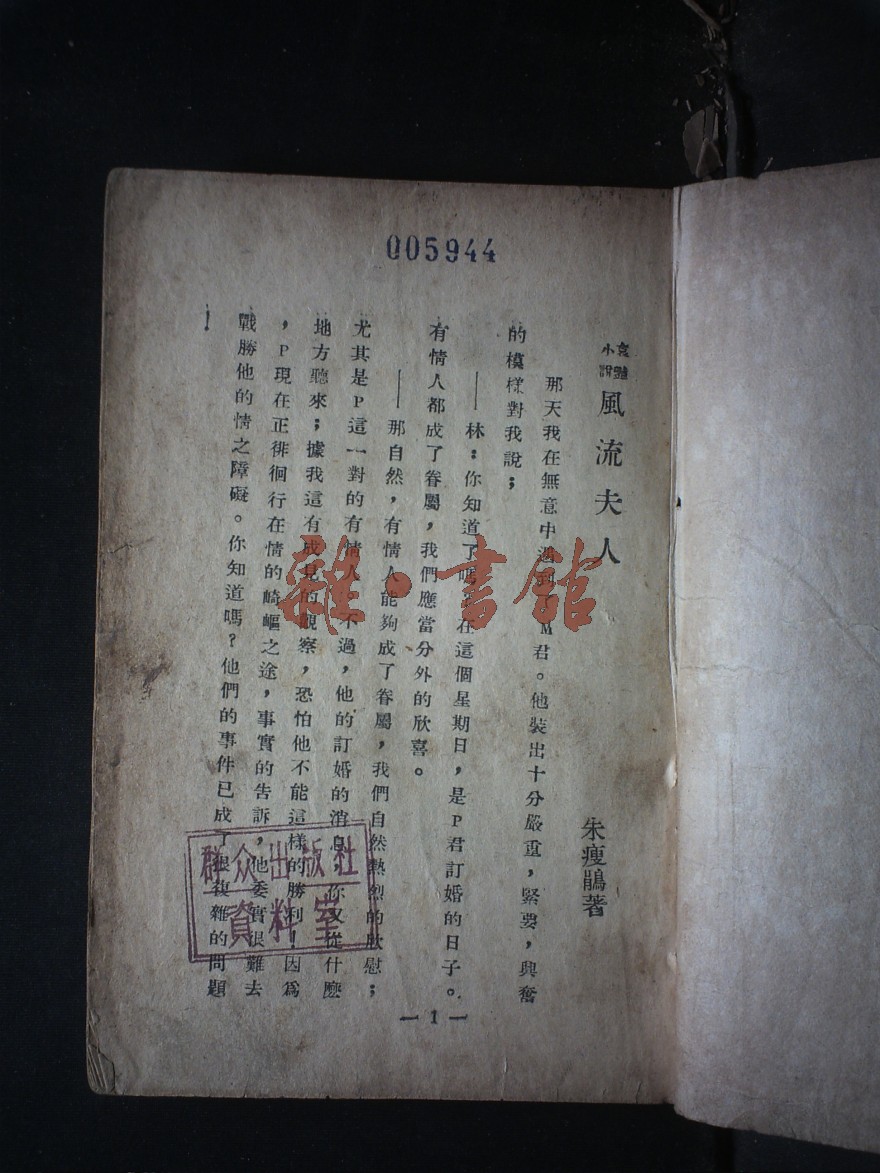 005944
哀艷小說
風流夫人
朱瘦鵑著
那天我在無意中遇到 M君。他裝出十分嚴重,緊要,興奮
的模樣對我說;
——林:你知道了嗎 在這個星期日,是P君訂婚的日子。
有情人都成了眷屬,我們應當分外的欣喜。
——那自然,有情人能夠成了眷屬,我們自然熱烈的欣慰;
尤其是P這一對的有情人 不過,他的訂婚的消息,你又從什麼
地方聽來;據我這有成見的觀察,恐怕他不能這樣的勝利!因爲
,P現在正徘徊行在情的崎嶇之途,事實的告訴,他委實很難去
戰勝他的情之障礙。你知道嗎?他們的事件已成了很複雜的問題
!
— 1 —
雜·書館
群众出版社
資料室